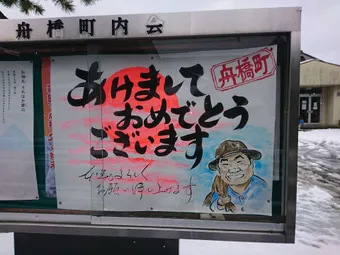 舟橋町内会
あけまして
おめでとう
ございます
舟橋町
今年もよろしく
お願い申し上げます